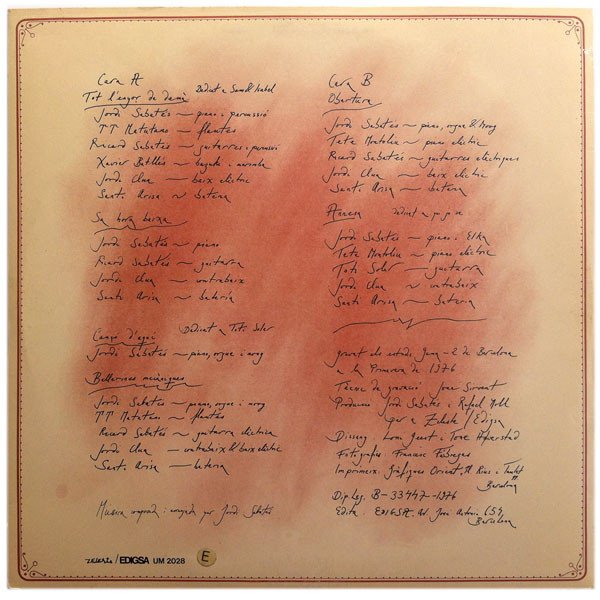 Cara A
Tot l'enyor de demà Dedicat a
Jordi Sabatés — piano i percussió
TT Matatano — flautes
Ricard Sabatés — guitarres i percussió
Xavier Batllés — i marimba
Jordi Clua — baix elèctric
Santi Arisa — bateria
Sa hora baixa
Jordi Sabatés — piano
Ricard Sabatés — guitarra
Jordi Clua — contrabaix
Santi Arisa — bateria
Dedicat a Toti Soler
Jordi Sabatés — piano, orgue i
Ballarines mecàniques
Jordi Sabatés — piano, orgue i
TT Matatano — flautes
Ricard Sabatés — guitarra elèctrica
Jordi Clua — contrabaix & baix elèctric
Santi Arisa — bateria
Musica composada i arranjada per Jordi Sabatés
zeleste / EDIGSA UM 2028
E
Cara B
Obertura
Jordi Sabatés — piano, orgue &
Tete Montoliu — piano elèctric
Ricard Sabatés — guitarres elèctriques
Jordi Clua — baix elèctric
Santi Arisa — bateria
Dedicat a
Jordi Sabatés — piano i
Tete Montoliu — piano elèctric
Toti Soler — guitarra
Jordi Clua — contrabaix
Santi Arisa — bateria
gravat als estudis Gema-2 de Barcelona
a la Primavera de 1976
Tècnic de gravació Joan
Producció Jordi Sabatés i Rafael Moll
per a Zeleste / Edigsa
Disseny i
Fotografies Francesc Fàbregas
Imprimeix: Gràfiques Orient, Rius i Taulet
Barcelona
Dip. leg. B-33447-1976
Edita. EDIGSA. Av. José Antonio 654,
Barcelona